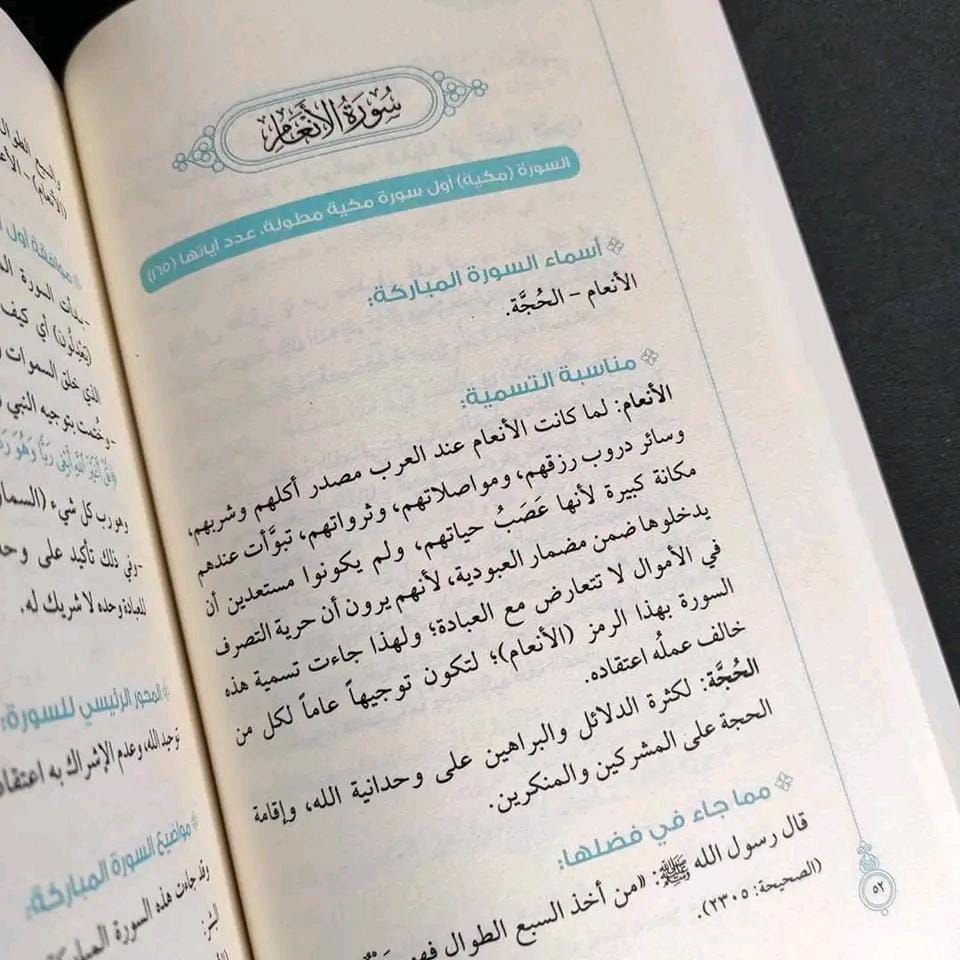 سُورَةُ الأَنْعَام
السورة (مكية) أول سورة مكية مطولة، عدد آياتها (١٦٥)
أسماء السورة المباركة:
الأنعام - الحُجَّة.
مناسبة التسمية:
الأنعام: لما كانت الأنعام عند العرب مصدر أكلهم وشربهم،
وسائر دروب رزقهم، ومواصلاتهم، وثرواتهم، تبوَّأت عندهم
مكانة كبيرة لأنها عَصَبُ حياتهم، ولم يكونوا مستعدين أن
يدخلوها ضمن مضمار العبودية، لأنهم يرون أن حرية التصرف
في الأموال لا تتعارض مع العبادة؛ ولهذا جاءت تسمية هذه
السورة بهذا الرمز (الأنعام)؛ لتكون توجيهاً عاماً لكل من
خالف عملُه اعتقاده.
الحُجَّة: لكثرة الدلائل والبراهين على وحدانية الله، وإقامة
الحجة على المشركين والمنكرين.
مما جاء في فضلها:
قال رسول الله ﷺ: «من أخذ السبع الطوال فهو
(الصحيحة: ٢٣٠٥).
٥٢
الطوال
(الأنعام) -
موافقة أول
-بدأت السورة
(يَعْدِلُونَ) أي كيف
الذي خلق السموات
-وخُتمت بتوجيه النبي
وهو رب كل شيء
-وفي ذلك تأكيد على
للعبادة وحده لا شريك له.
المحور الرئيسي للسورة:
توحيد الله، وعدم الإشراك به
مواضيع السورة المباركة:
وقد جاءت هذه السورة